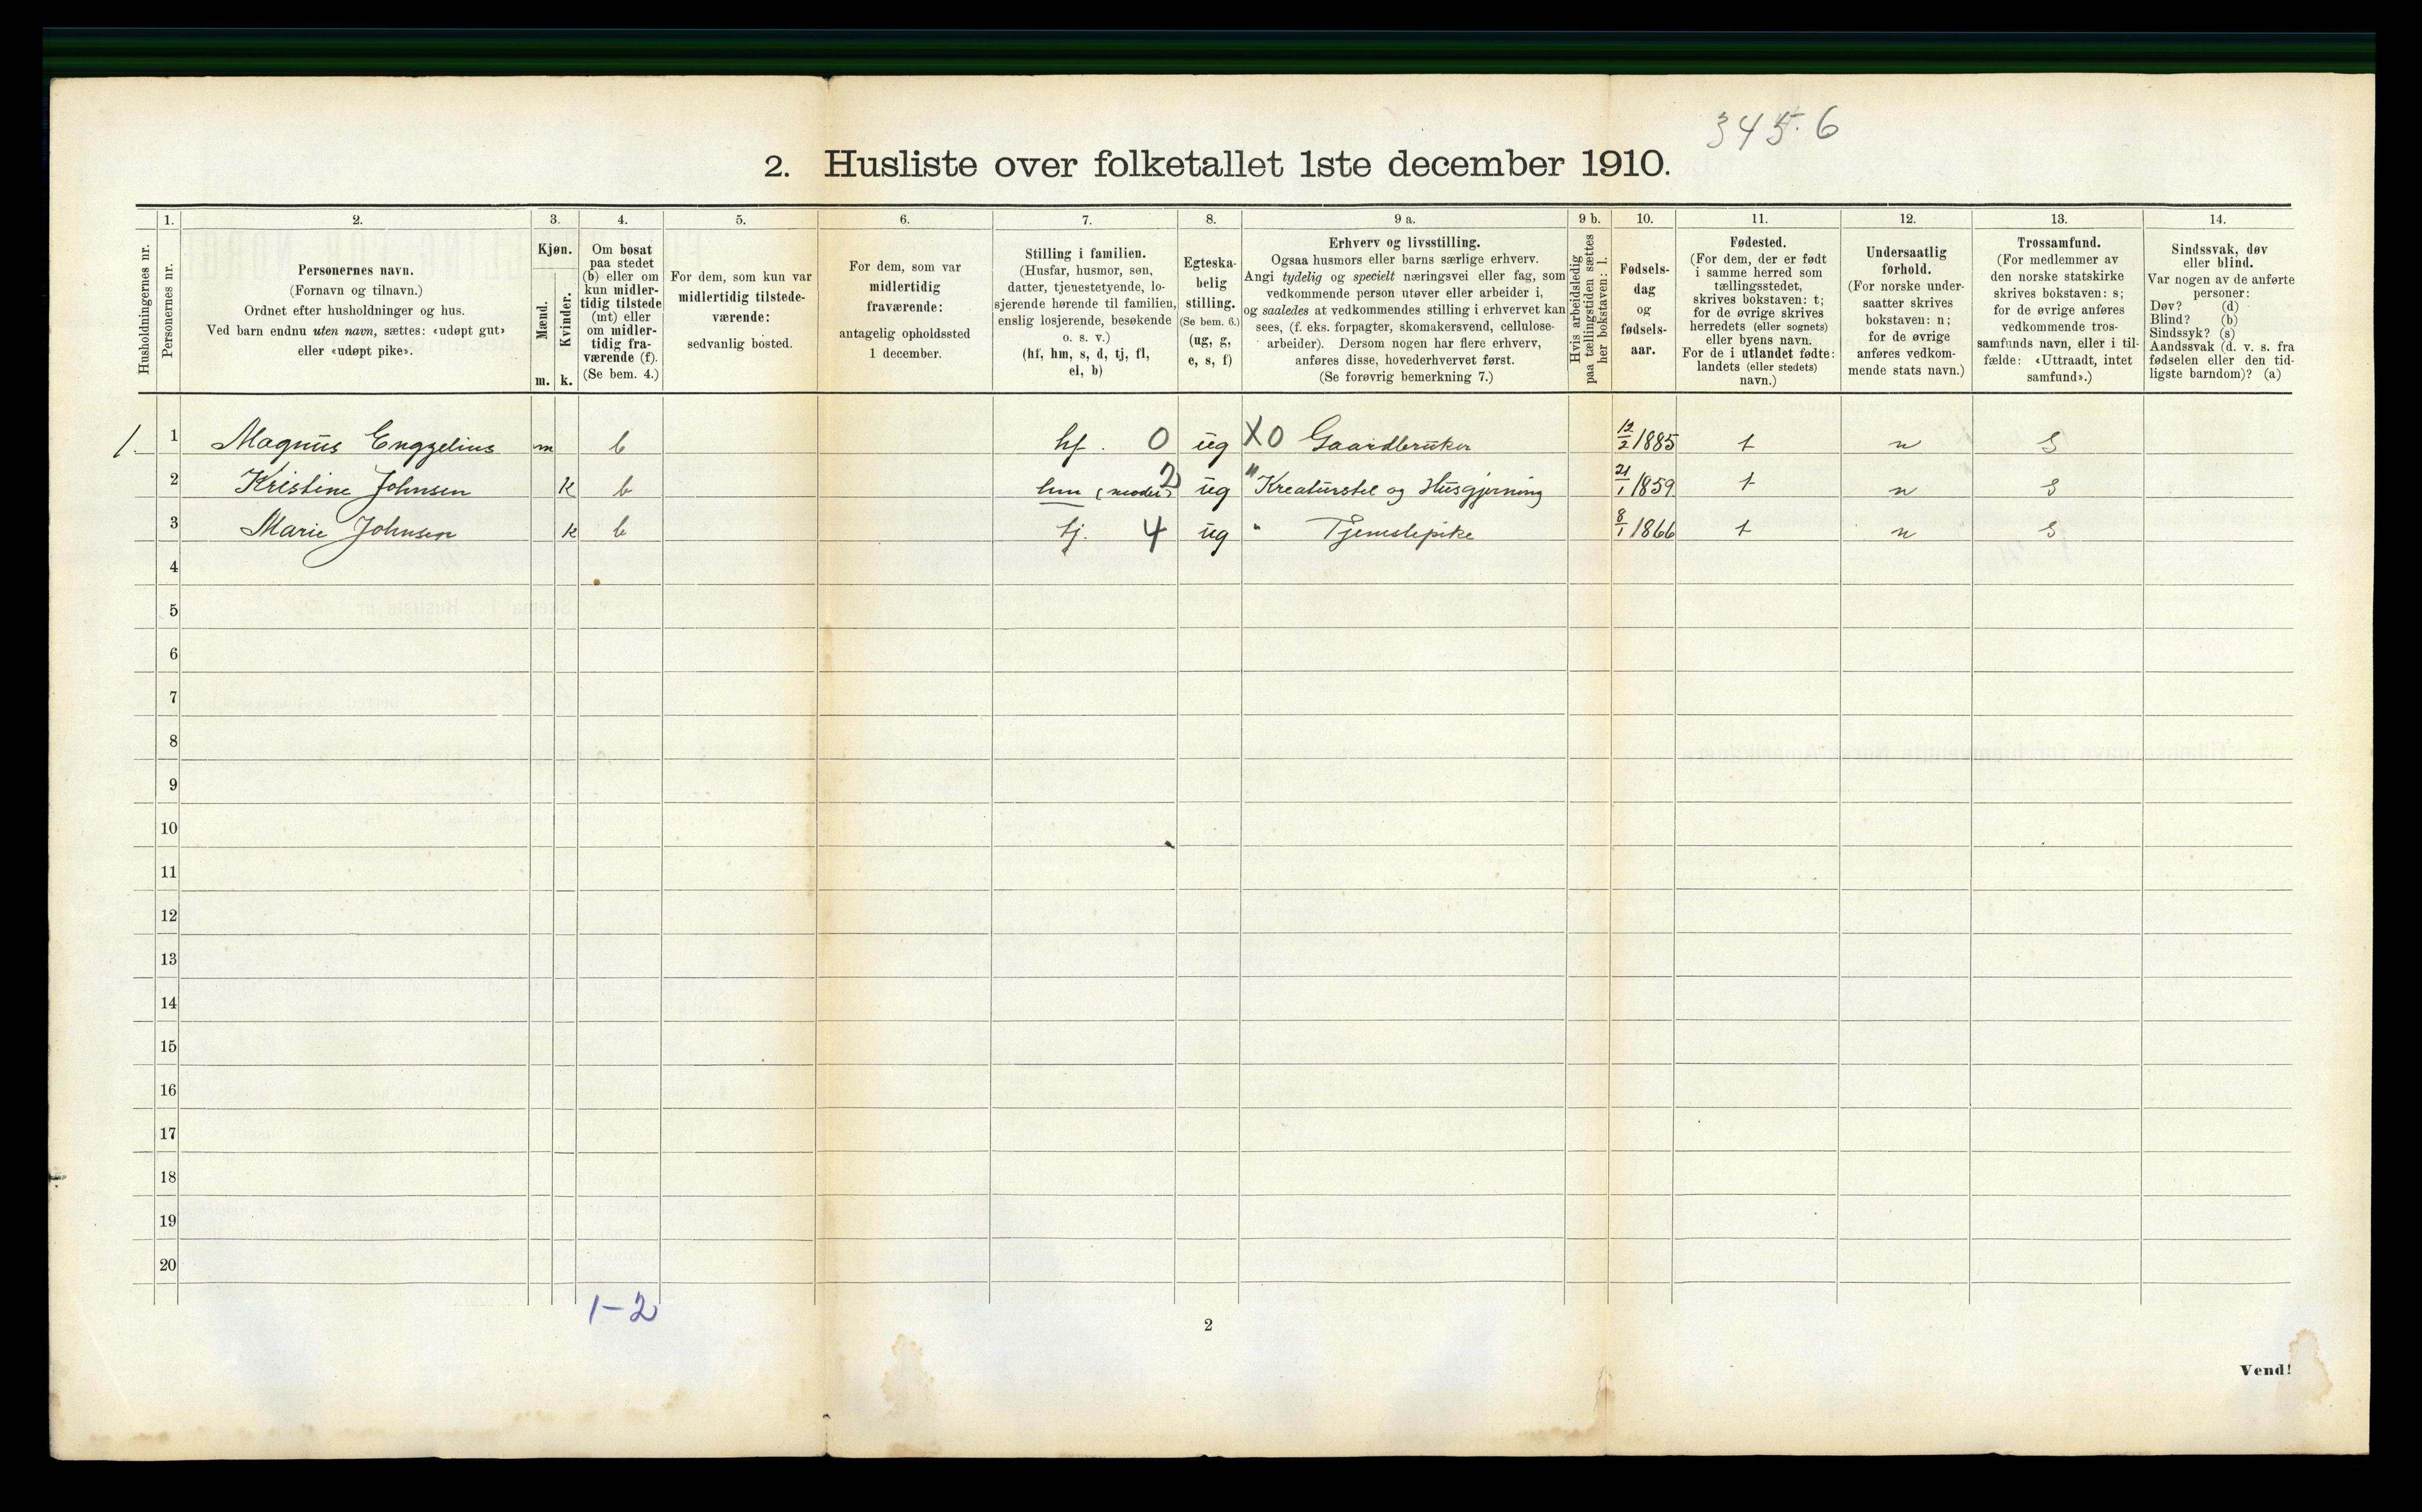 345.6
2. Husliste over folketallet 1ste december 1910.
Husholdningernes nr.
1.
Personernes nr.
2.
Personernes navn.
(Fornavn og tilnavn.)
Ordnet efter husholdninger og hus.
Ved barn endnu uten navn, sættes: «udøpt gut»
eller «udøpt pike».
3.
Kjøn.
Mænd.
Kvinder.
m. k.
4.
Om bosat
paa stedet
(b) eller om
kun midler-
tidig tilstede
(mt) eller
om midler-
tidig fra-
værende (f).
(Se bem. 4.)
5.
For dem, som kun var
midlertidig tilstede-
værende:
sedvanlig bosted.
6.
For dem, som var
midlertidig
fraværende:
antagelig opholdssted
1 december.
7.
Stilling i familien.
(Husfar, husmor, søn,
datter, tjenestetyende, lo-
sjerende hørende til familien,
enslig losjerende, besøkende
o. s. v.)
(hf, hm, s, d, tj, fl,
el, b)
8.
Egteska-
belig
stilling.
(Se bem. 6.)
(ug, g,
e, s, f)
9 a.
Erhverv og livsstilling.
Ogsaa husmors eller barns særlige erhverv.
Angi tydelig og specielt næringsvei eller fag, som
vedkommende person utøver eller arbeider i,
og saaledes at vedkommendes stilling i erhvervet kan
sees, (f. eks. forpagter, skomakersvend, cellulose-
arbeider). Dersom nogen har flere erhverv,
anføres disse, hovederhvervet først.
(Se forøvrig bemerkning 7.)
9 b.
Hvis arbeidsledig
paa tællingstiden sættes
her bokstaven: l.
10.
Fødsels-
dag
og
fødsels-
aar.
11.
Fødested.
(For dem, der er født
i samme herred som
tællingsstedet,
skrives bokstaven: t;
for de øvrige skrives
herredets (eller sognets)
eller byens navn.
For de i utlandet fødte:
landets (eller stedets)
navn.)
12.
Undersaatlig
forhold.
(For norske under-
saatter skrives
bokstaven: n;
for de øvrige
anføres vedkom-
mende stats navn.)
13.
Trossamfund.
(For medlemmer av
den norske statskirke
skrives bokstaven: s;
for de øvrige anføres
vedkommende tros-
samfunds navn, eller i til-
fælde: «Uttraadt, intet
samfund».)
14.
Sindssvak, døv
eller blind.
Var nogen av de anførte
personer:
Døv? (d)
Blind? (b)
Sindssyk? (s)
Aandssvak (d. v. s. fra
fødselen eller den tid-
ligste barndom)? (a)
1. 1 Magnus Enggelius m b hf. 0 ug X0 Gaardbruker 12/2 1885 t n S
2 Kristine Johnsen k b hm (moder) 2 ug " Kreaturstel og Husgjerning 21/1 1859 t n S
3 Marie Johnsen k b tj. 4 ug " Tjenestepike 8/1 1866 t n S
4
5
6
7
8
9
10
11
12
13
14
15
16
17
18
19
20
1-2
2
Vend!